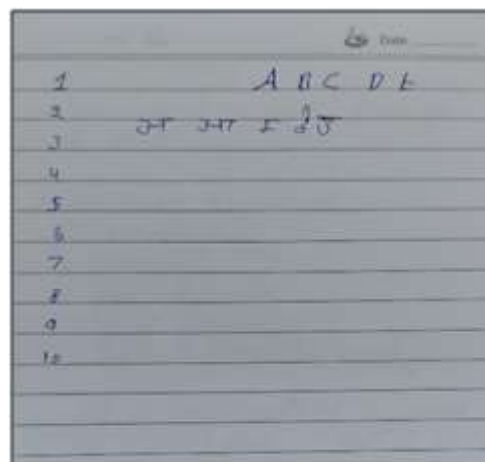 Date
1 A B C D E
2 अ आ इ ई उ
3
4
5
6
7
8
9
10